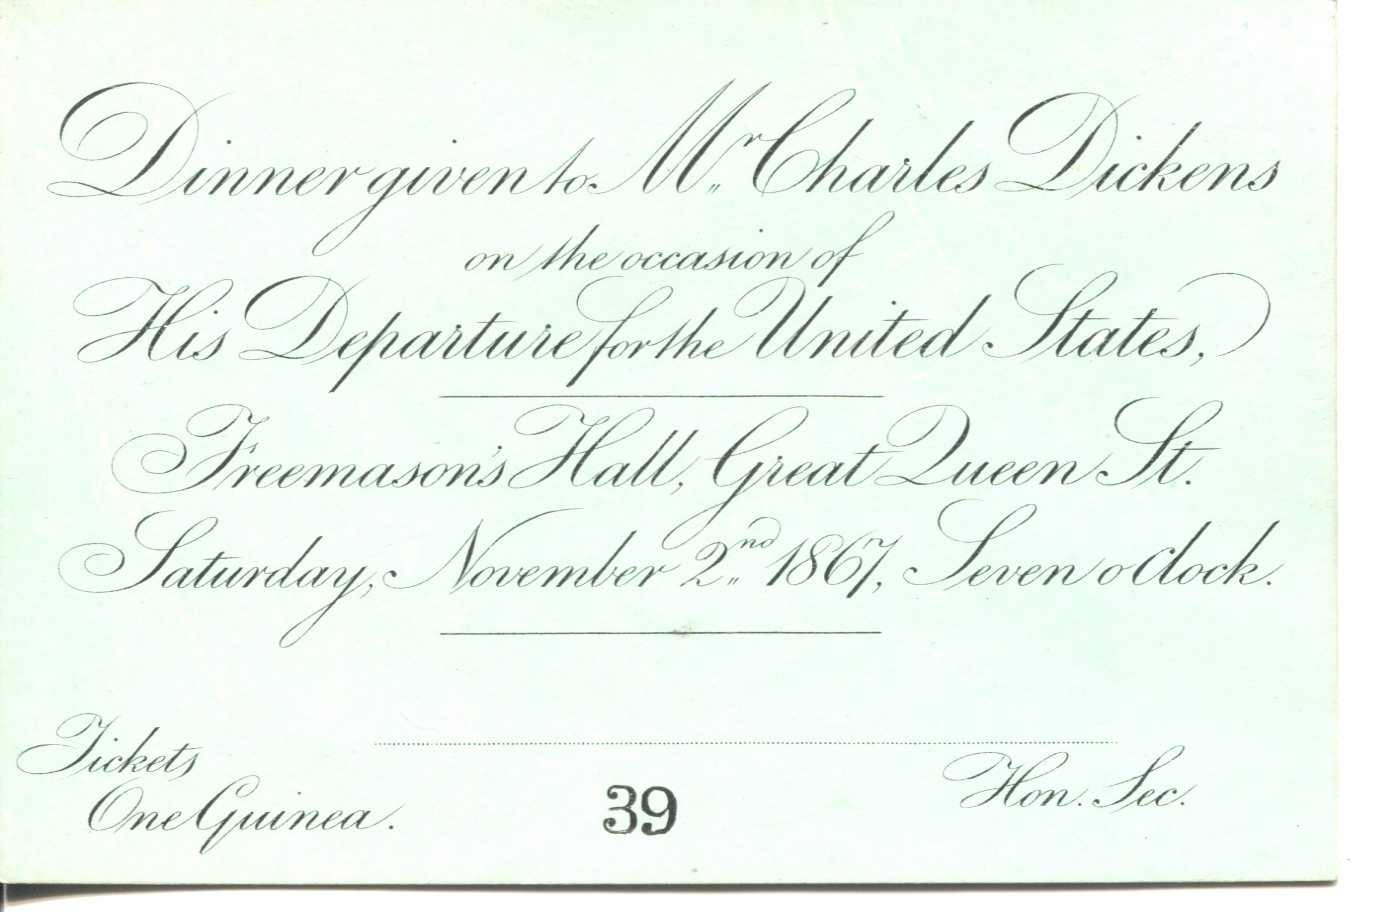 Dinner given to Mr. Charles Dickens
on the occasion of
His Departure for the United States,
Freemason's Hall, Great Queen St.
Saturday, November 2nd 1867, Seven o Clock.
Tickets
One Guinea.
39
Hon. Sec.